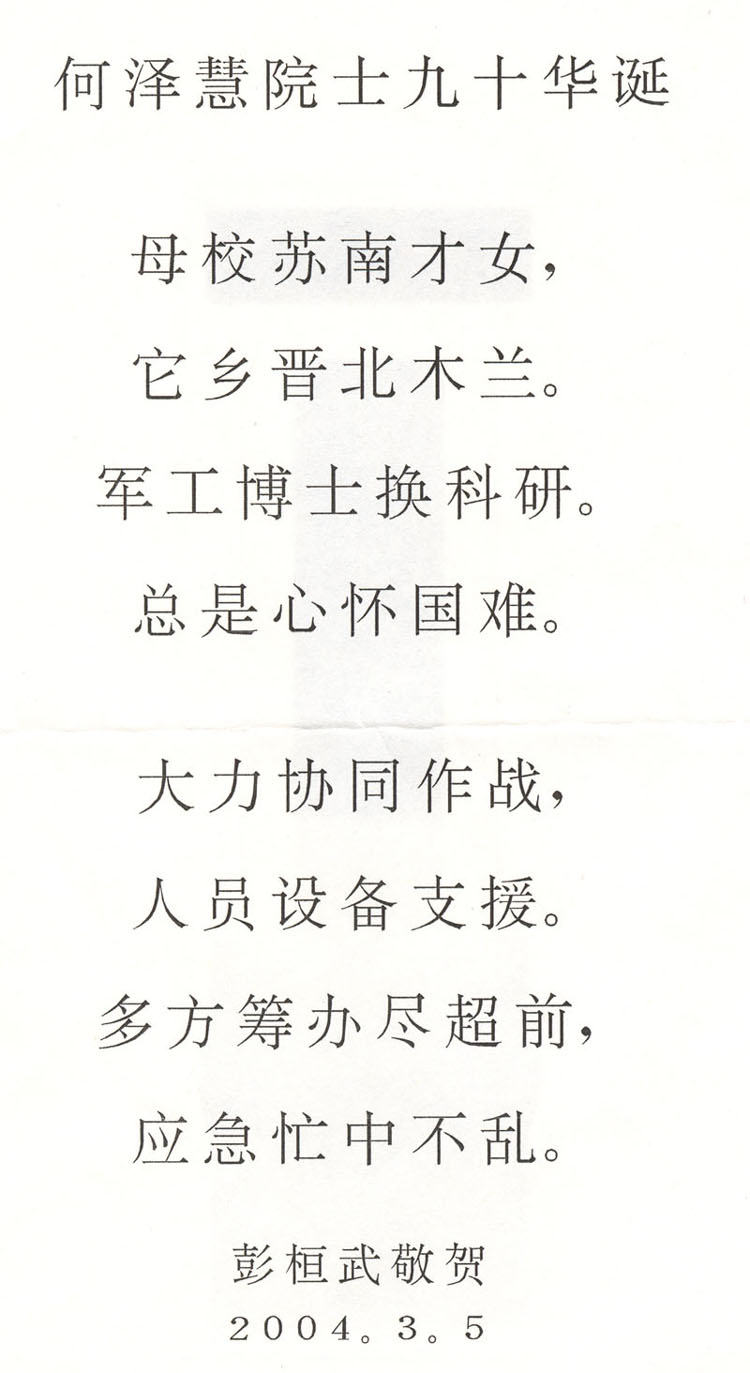 何泽慧院士九十华诞
母校苏南才女，
它乡晋北木兰。
军工博士换科研。
总是心怀国难。
大力协同作战，
人员设备支援。
多方筹办尽超前，
应急忙中不乱。
彭桓武敬贺
2004。3。5